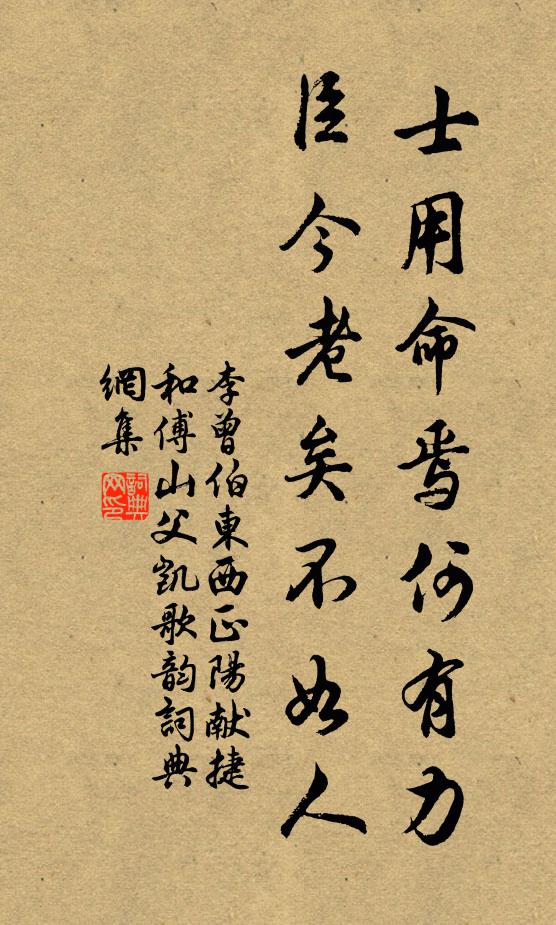 士用命焉何有力
臣今老矣不如人
李曾伯東西正陽献捷
和傅山父凱歌韵詞典
網集
詞典
网印